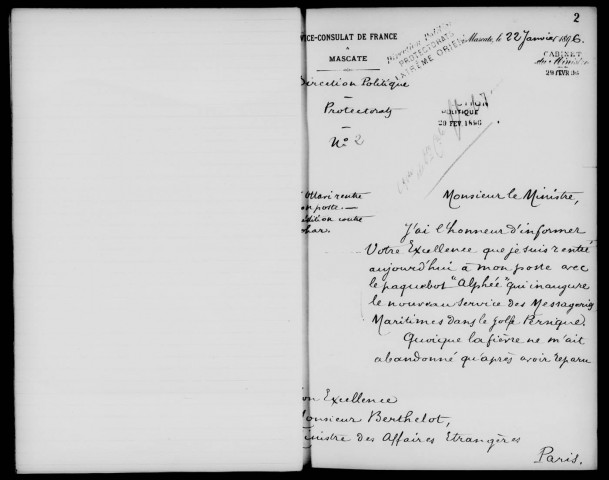 2
VICE-CONSULAT DE FRANCE
à
MASCATE
Direction Politique
PROTECTORATS
EXTRÊME ORIENT
Mascate, le 22 Janvier 1896.
CABINET
du Ministre
29 FEVR 96
Direction Politique
Protectorats
No 2
POLITIQUE
20 FEV. 1896
Ottavi rentre
on poste.—
édition contre
ohar.
Monsieur le Ministre,
J'ai l'honneur d'informer
Votre Excellence que je suis rentré
aujourd'hui à mon poste avec
le paquebot "Alphée" qui inaugure
le nouveau service des Messageries
Maritimes dans le golfe Persique.
Quoique la fièvre ne m'ait
abandonné qu'après avoir reparu
on Excellence
onsieur Berthelot,
inistre des Affaires Etrangères
Paris.